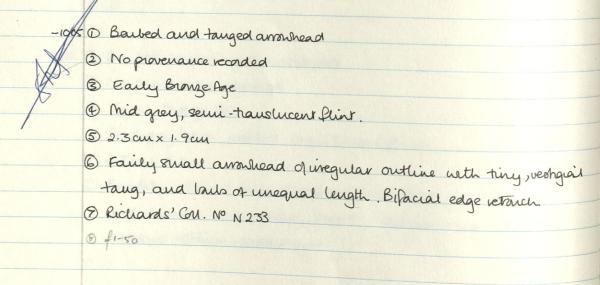 -1005 ① Barbed and tanged arrowhead
② No provenance recorded
③ Early Bronze Age
④ Mid grey, semi-translucent flint.
⑤ 2.3cm x 1.9cm
⑥ Fairly small arrowhead of irregular outline with tiny, vestigial
tang, and barbs of unequal length. Bifacial edge retouch
⑦ Richards' Coll. No N233
⑧ £1-50